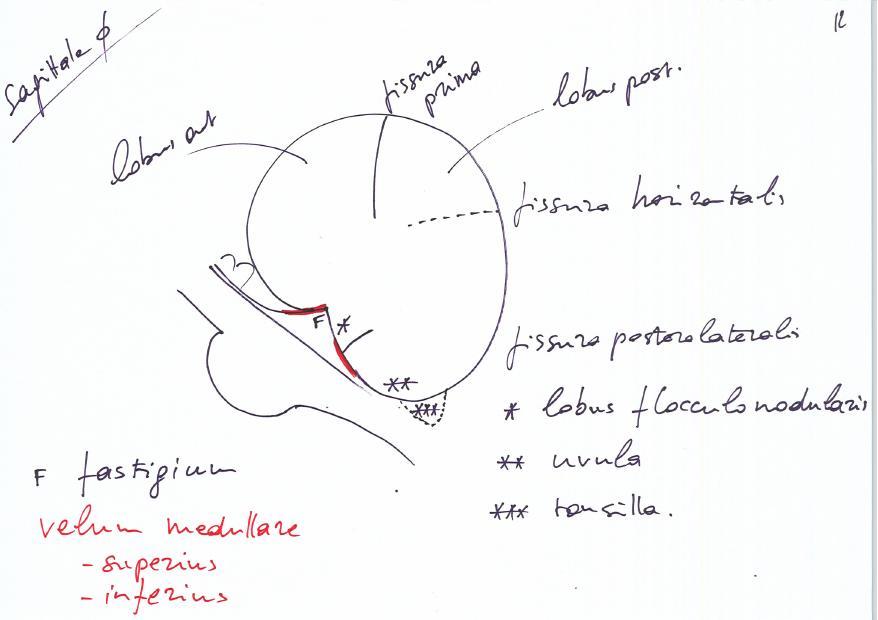 12
Sagittale φ
fissura
prima
lobus post.
lobus ant
fissura horizontalis
F
*
fissura posterolateralis
**
***
* lobus flocculonodularis
F fastigium
** uvula
*** tonsilla.
velum medullare
- superius
- inferius